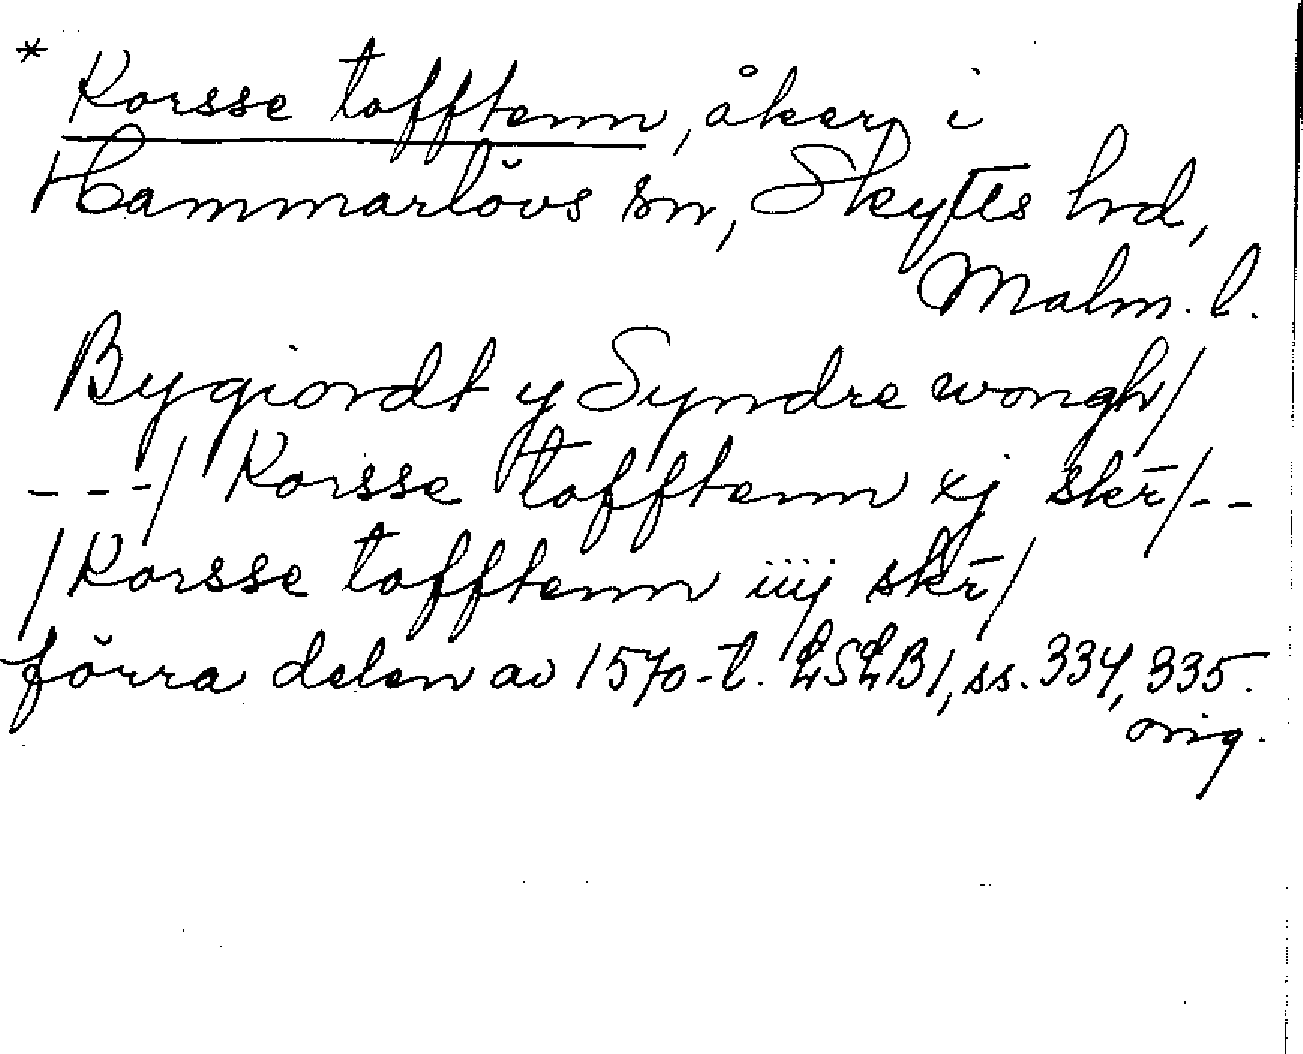 * Korsse tofftenn, åker i
Hammarlövs sn, Skytts hrd,
Malm. l.
Bygiordt y Syndre wongh/
---/ Korsse tofftenn xj skr̄/--
/Korsse tofftenn iiij skr̄/
förra delen av 1570-t. LSLB1, ss. 334, 335.
orig.